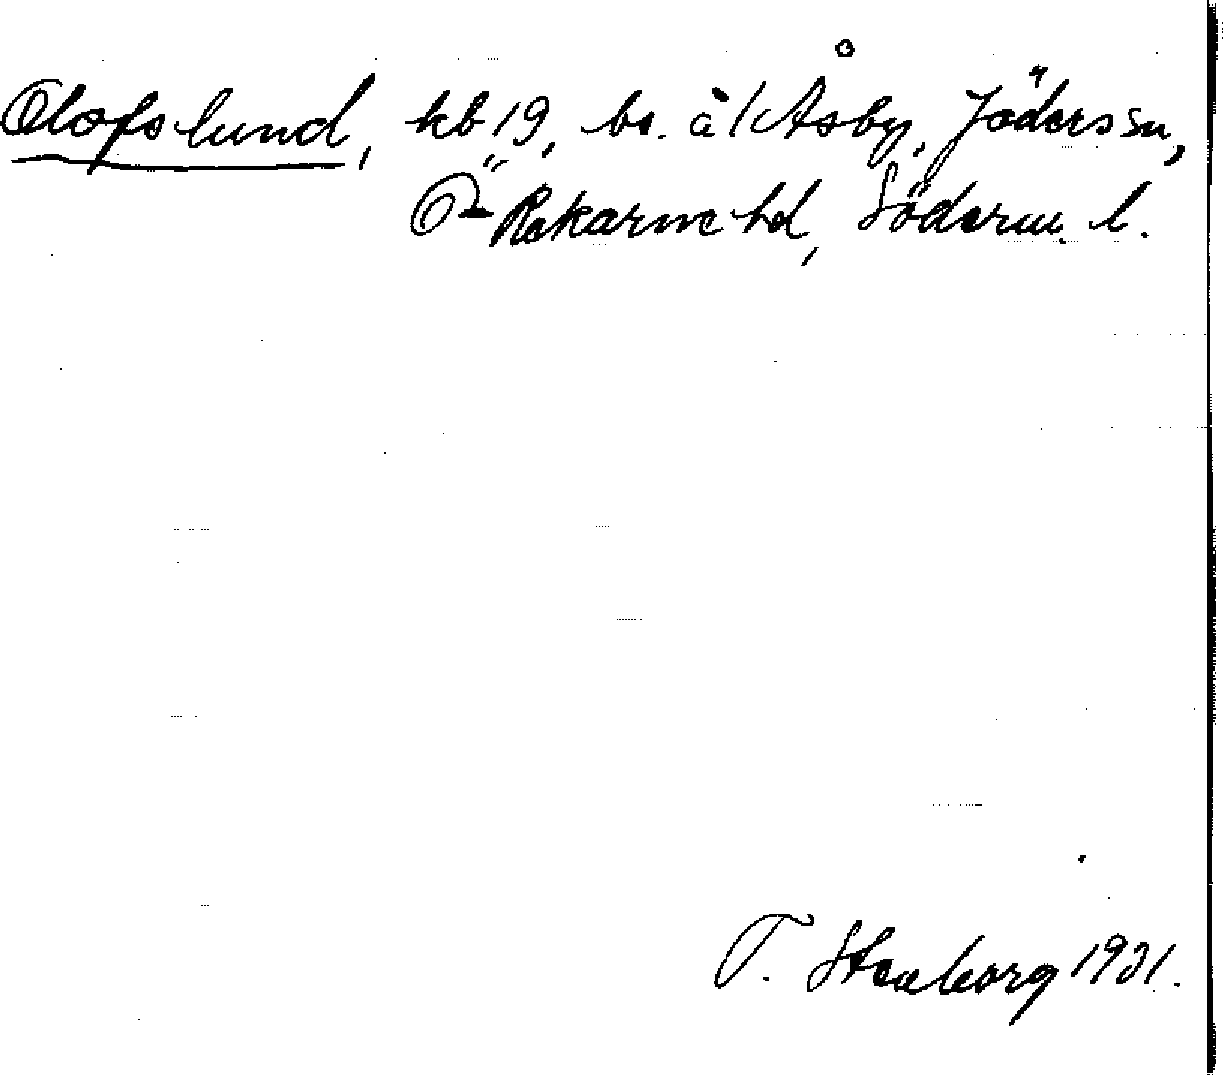 Olofslund, kb 19, be. å 1/1 Åsby, Jäders sn,
Ö-Rekarne hd, Söderm. l.
T. Stenborg 1931.